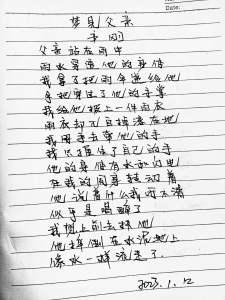 Date:
梦见父亲
于刚
父亲站在雨中
雨水穿透他的身体
我拿了把雨伞递给他
手把穿过了他的手掌
我给他披上一件雨衣
雨衣却兀自掉落在地
我用手去牵他的手
我只握住了自己的手
他的身体有水和闪电
在我的周身转动着
他说着什么我听不清
似乎是喝醉了
我追上前去扶他
他摔倒在水泥地上
像水一样流走了
2023.1.12